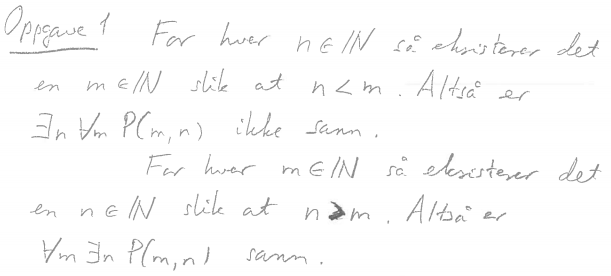 Oppgave 1 For hver n ∈ ℕ så eksisterer det
en m ∈ ℕ slik at n < m. Altså er
∃n ∀m P(m,n) ikke sann.
For hver m ∈ ℕ så eksisterer det
en n ∈ ℕ slik at n > m. Altså er
∀m ∃n P(m,n) sann.